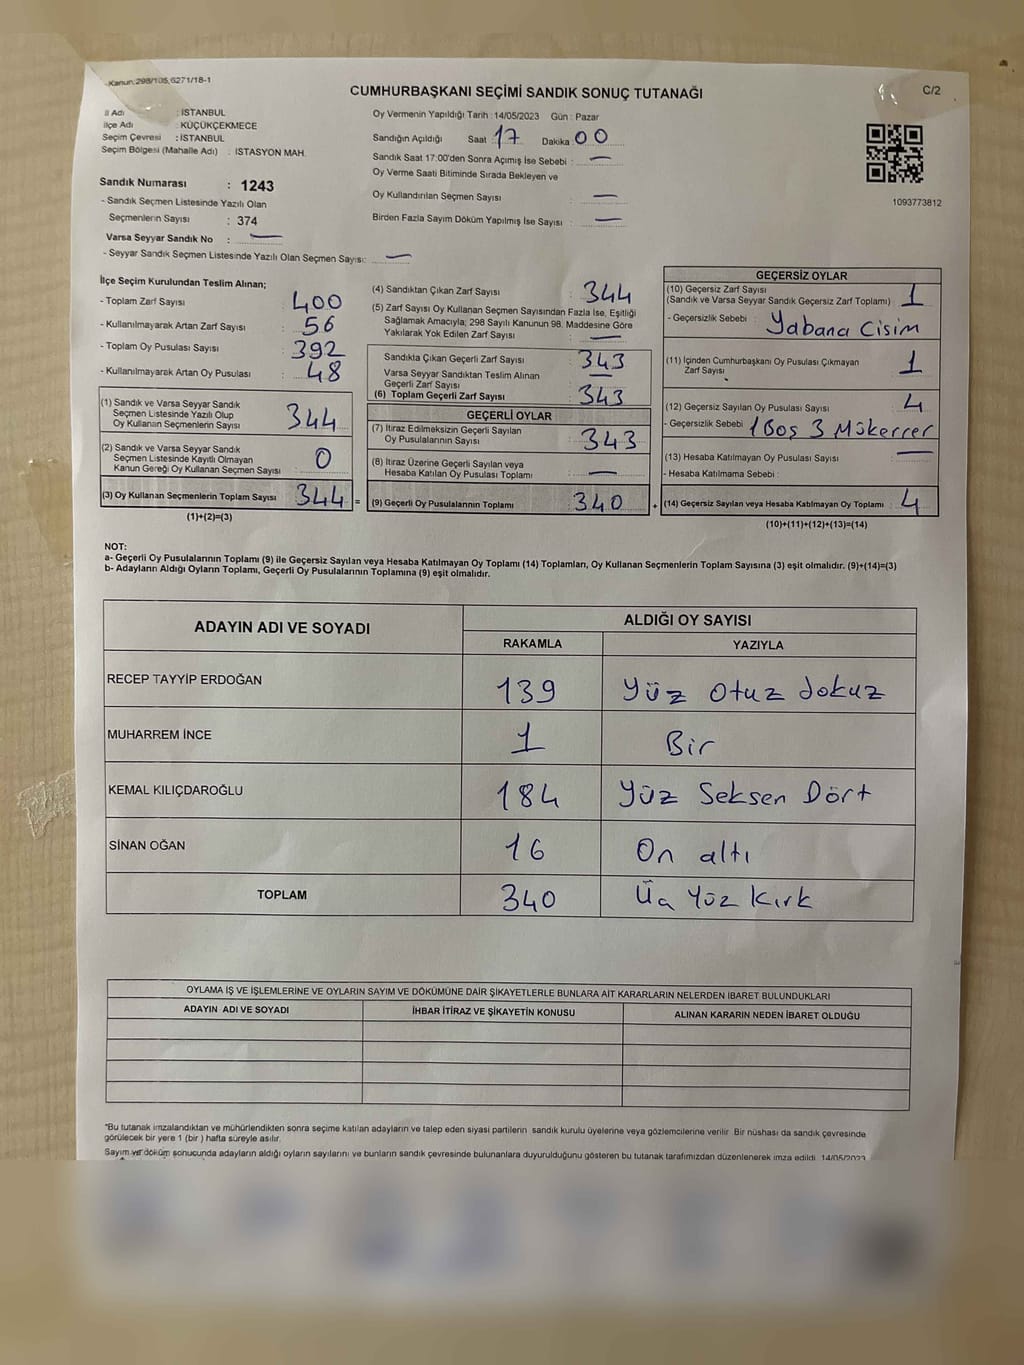 Kanun:298/105,6271/18-1
CUMHURBAŞKANI SEÇİMİ SANDIK SONUÇ TUTANAĞI
C/2
İl Adı : İSTANBUL
İlçe Adı : KÜÇÜKÇEKMECE
Seçim Çevresi : İSTANBUL
Seçim Bölgesi (Mahalle Adı) : İSTASYON MAH.
Oy Vermenin Yapıldığı Tarih : 14/05/2023 Gün : Pazar
Sandığın Açıldığı Saat : 17 Dakika : 00
Sandık Saat 17:00'den Sonra Açımış İse Sebebi : —
Oy Verme Saati Bitiminde Sırada Bekleyen ve
Oy Kullandırılan Seçmen Sayısı : —
Birden Fazla Sayım Döküm Yapılmış İse Sayısı : —
1093773812
Sandık Numarası : 1243
- Sandık Seçmen Listesinde Yazılı Olan
Seçmenlerin Sayısı : 374
Varsa Seyyar Sandık No : —
- Seyyar Sandık Seçmen Listesinde Yazılı Olan Seçmen Sayısı: —
İlçe Seçim Kurulundan Teslim Alınan;
- Toplam Zarf Sayısı : 400
- Kullanılmayarak Artan Zarf Sayısı : 56
- Toplam Oy Pusulası Sayısı : 392
- Kullanılmayarak Artan Oy Pusulası : 48
(1) Sandık ve Varsa Seyyar Sandık
Seçmen Listesinde Yazılı Olup
Oy Kullanan Seçmenlerin Sayısı : 344
(2) Sandık ve Varsa Seyyar Sandık
Seçmen Listesinde Kayıtlı Olmayan
Kanun Gereği Oy Kullanan Seçmen Sayısı : 0
(3) Oy Kullanan Seçmenlerin Toplam Sayısı : 344 =
(1)+(2)=(3)
(4) Sandıktan Çıkan Zarf Sayısı : 344
(5) Zarf Sayısı Oy Kullanan Seçmen Sayısından Fazla İse, Eşitliği
Sağlamak Amacıyla, 298 Sayılı Kanunun 98. Maddesine Göre
Yakılarak Yok Edilen Zarf Sayısı : —
Sandıkta Çıkan Geçerli Zarf Sayısı : 343
Varsa Seyyar Sandıktan Teslim Alınan
Geçerli Zarf Sayısı : —
(6) Toplam Geçerli Zarf Sayısı : 343
GEÇERLİ OYLAR
(7) İtiraz Edilmeksizin Geçerli Sayılan
Oy Pusulalarının Sayısı : 343
(8) İtiraz Üzerine Geçerli Sayılan veya
Hesaba Katılan Oy Pusulası Toplamı : —
(9) Geçerli Oy Pusulalarının Toplamı : 340 +
GEÇERSİZ OYLAR
(10) Geçersiz Zarf Sayısı
(Sandık ve Varsa Seyyar Sandık Geçersiz Zarf Toplamı) : 1
- Geçersizlik Sebebi : Yabancı Cisim
(11) İçinden Cumhurbaşkanı Oy Pusulası Çıkmayan
Zarf Sayısı : 1
(12) Geçersiz Sayılan Oy Pusulası Sayısı : 4
- Geçersizlik Sebebi : 1 Boş 3 Mükerrer
(13) Hesaba Katılmayan Oy Pusulası Sayısı : —
- Hesaba Katılmama Sebebi :
(14) Geçersiz Sayılan veya Hesaba Katılmayan Oy Toplamı : 4
(10)+(11)+(12)+(13)=(14)
NOT:
a- Geçerli Oy Pusulalarının Toplamı (9) ile Geçersiz Sayılan veya Hesaba Katılmayan Oy Toplamı (14) Toplamları, Oy Kullanan Seçmenlerin Toplam Sayısına (3) eşit olmalıdır. (9)+(14)=(3)
b- Adayların Aldığı Oyların Toplamı, Geçerli Oy Pusulalarının Toplamına (9) eşit olmalıdır.
ADAYIN ADI VE SOYADI
ALDIĞI OY SAYISI
RAKAMLA YAZIYLA
RECEP TAYYİP ERDOĞAN 139 Yüz otuz dokuz
MUHARREM İNCE 1 Bir
KEMAL KILIÇDAROĞLU 184 Yüz Seksen Dört
SİNAN OĞAN 16 On altı
TOPLAM 340 Üç Yüz Kırk
OYLAMA İŞ VE İŞLEMLERİNE VE OYLARIN SAYIM VE DÖKÜMÜNE DAİR ŞİKAYETLERLE BUNLARA AİT KARARLARIN NELERDEN İBARET BULUNDUKLARI
ADAYIN ADI VE SOYADI İHBAR İTİRAZ VE ŞİKAYETİN KONUSU ALINAN KARARIN NEDEN İBARET OLDUĞU
*Bu tutanak imzalandıktan ve mühürlendikten sonra seçime katılan adayların ve talep eden siyasi partilerin sandık kurulu üyelerine veya gözlemcilerine verilir. Bir nüshası da sandık çevresinde
görülecek bir yere 1 (bir ) hafta süreyle asılır.
Sayım ve döküm sonucunda adayların aldığı oyların sayılarını ve bunların sandık çevresinde bulunanlara duyurulduğunu gösteren bu tutanak tarafımızdan düzenlenerek imza edildi. 14/05/2023